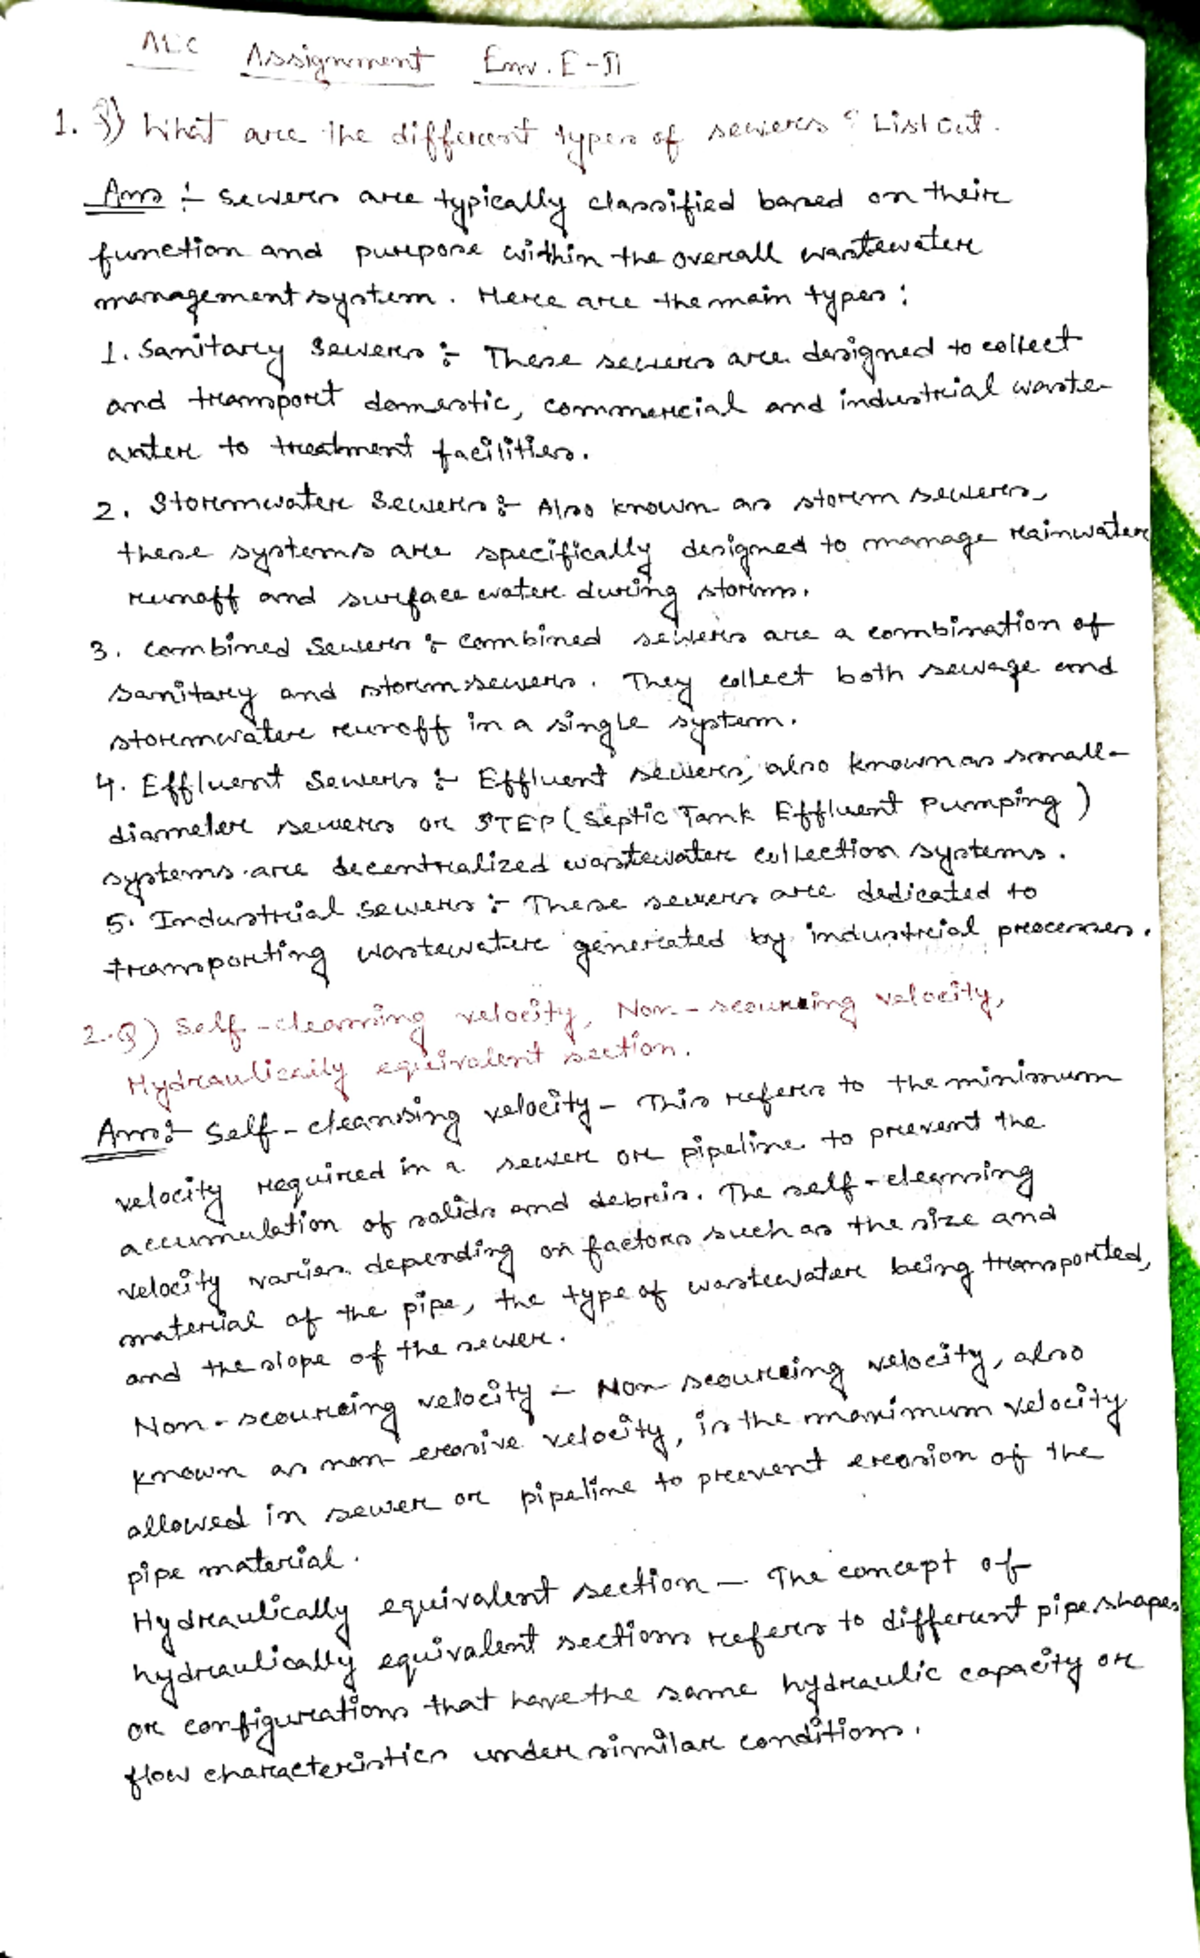 ALC Assignment Env. E-II
1. Q) What are the different types of sewers ? List out.
Ans :- Sewers are typically classified based on their
function and purpose within the overall wastewater
management system. Here are the main types :
1. Sanitary Sewers :- These sewers are designed to collect
and transport domestic, commercial and industrial waste-
water to treatment facilities.
2. Stormwater Sewers :- Also known as storm sewers,
these systems are specifically designed to manage rainwater
runoff and surface water during storms.
3. Combined Sewers :- Combined sewers are a combination of
sanitary and storm sewers. They collect both sewage and
stormwater runoff in a single system.
4. Effluent Sewers :- Effluent sewers, also known as small-
diameter sewers or STEP (Septic Tank Effluent Pumping)
systems are decentralized wastewater collection systems.
5. Industrial sewers :- These sewers are dedicated to
transporting wastewater generated by industrial processes.
2.Q) Self-cleansing velocity, Non-scouring velocity,
Hydraulically equivalent section.
Ans :- Self-cleansing velocity - This refers to the minimum
velocity required in a sewer or pipeline to prevent the
accumulation of solids and debris. The self-cleansing
velocity varies depending on factors such as the size and
material of the pipe, the type of wastewater being transported,
and the slope of the sewer.
Non-scouring velocity - Non scouring velocity, also
known as non-erosive velocity, is the maximum velocity
allowed in sewer or pipeline to prevent erosion of the
pipe material.
Hydraulically equivalent section - The concept of
hydraulically equivalent sections refers to different pipe shapes
or configurations that have the same hydraulic capacity or
flow characteristics under similar conditions.